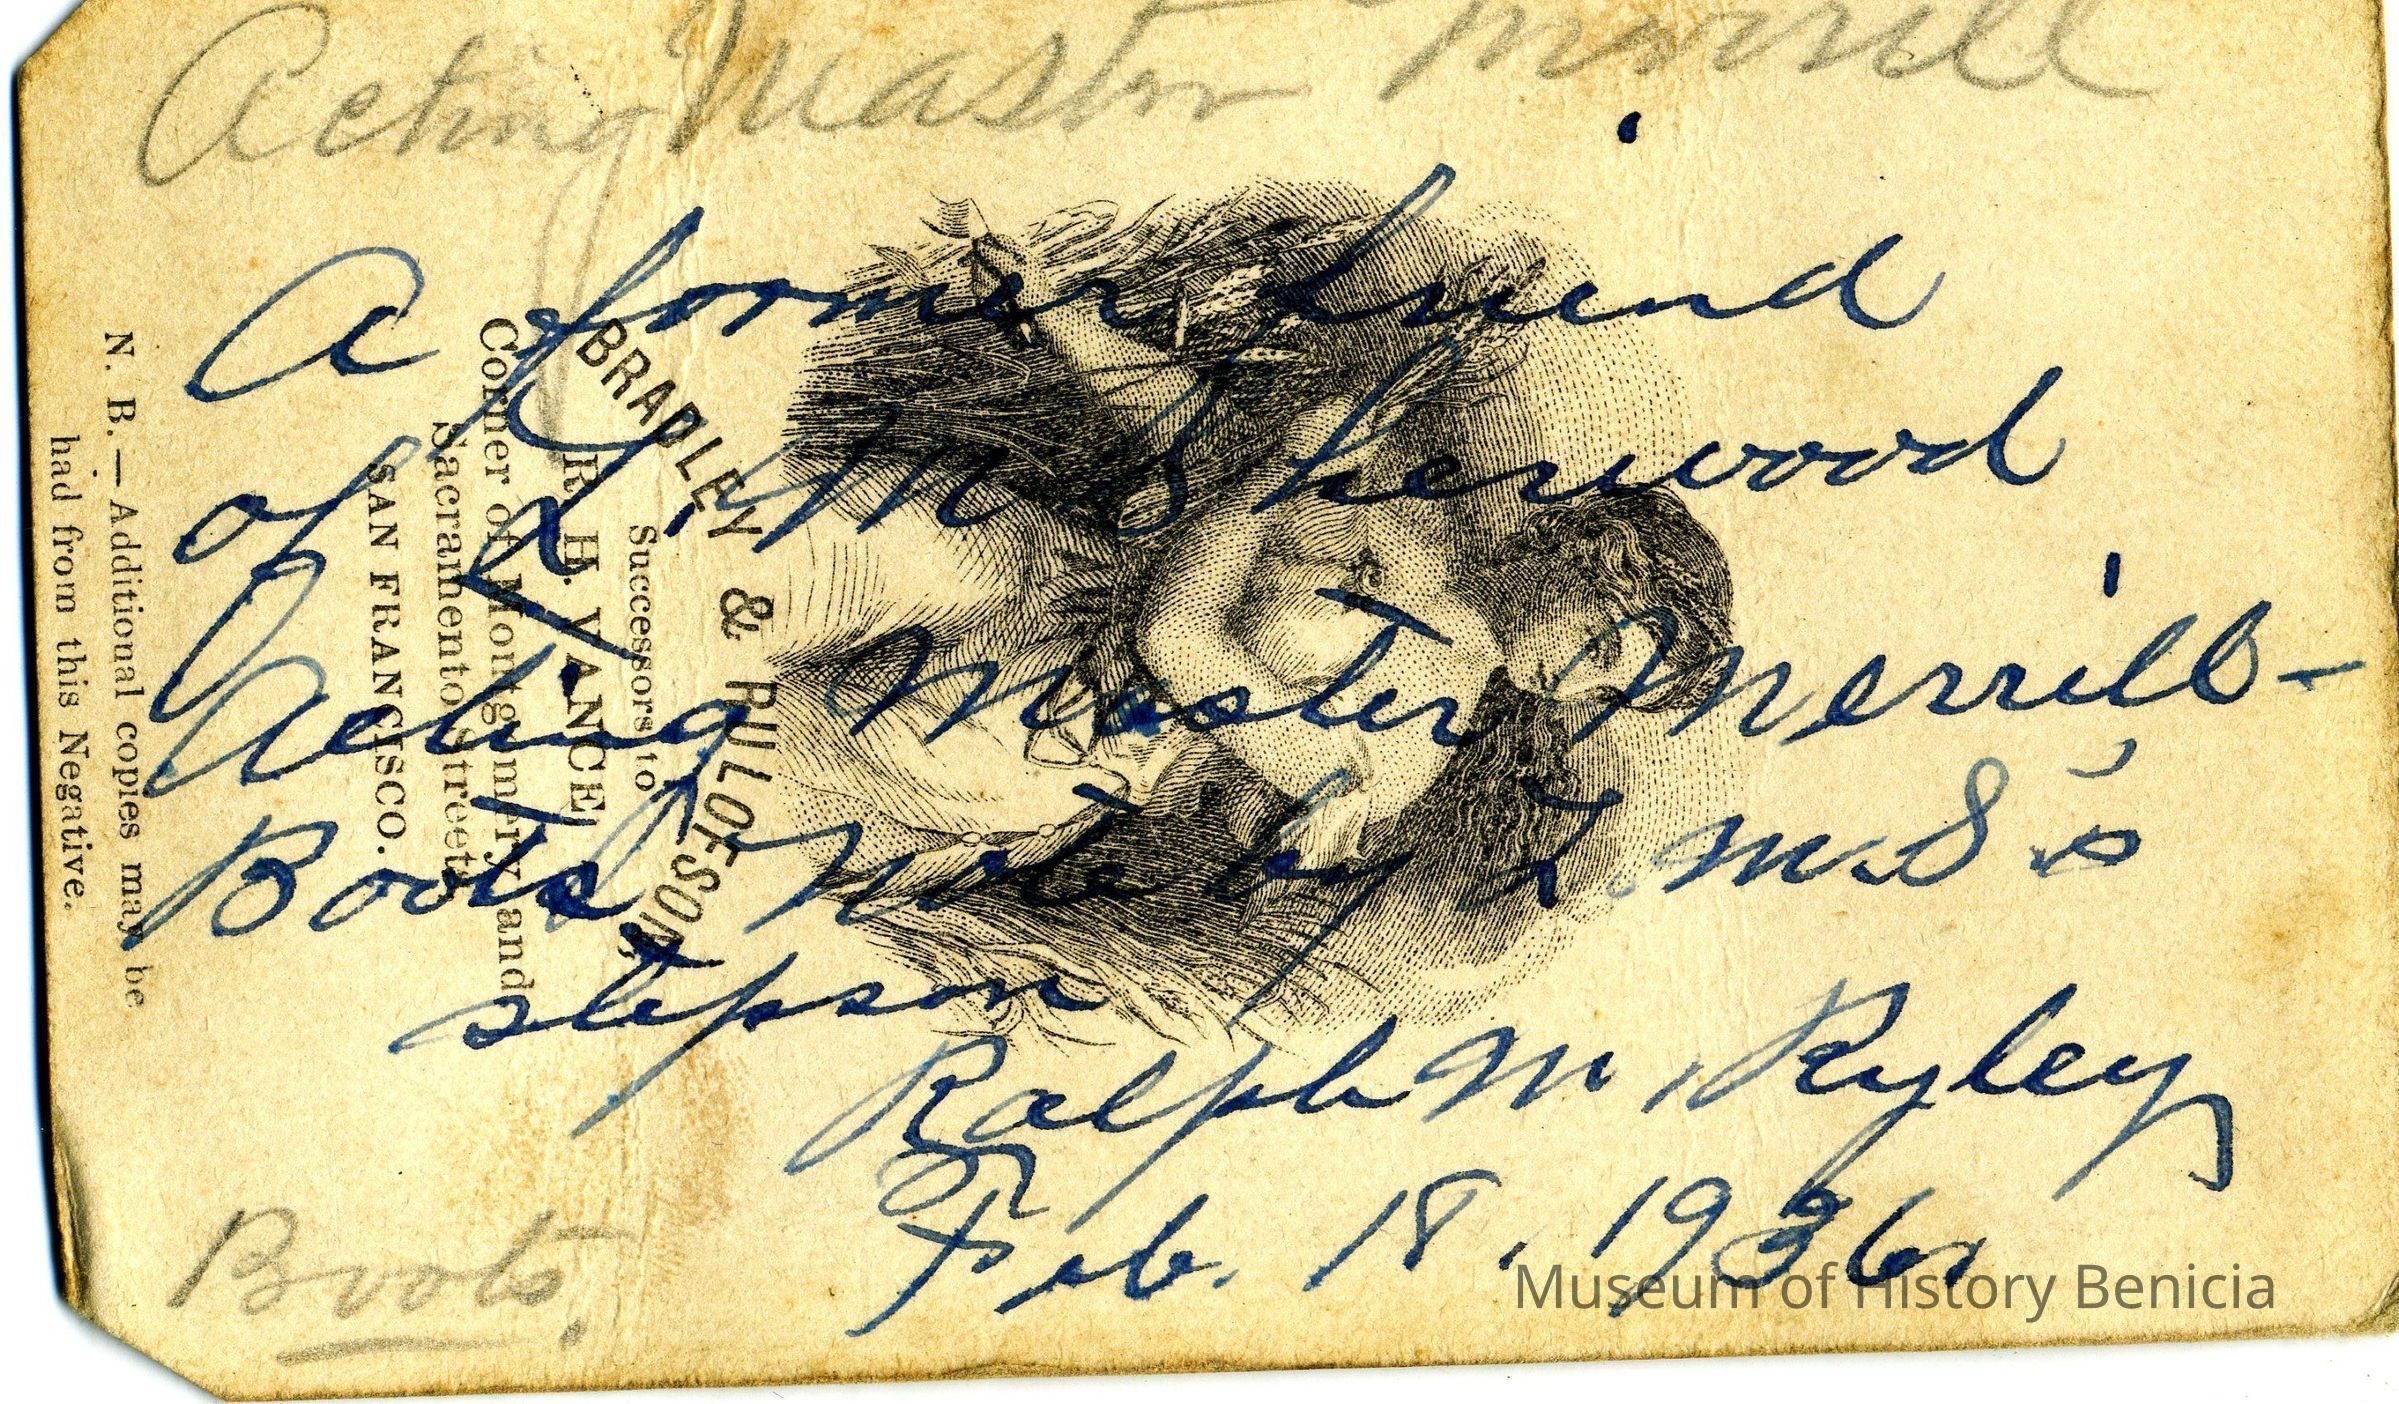 Acting Master Merrill
A former friend
of L. M. Sherwood
Acting Master Merrill –
Boots Note by L. M. S's
stepson,
Ralph M. Ryley
Feb. 18, 1936
Boots.
BRADLEY & RULOFSON,
Successors to
R. H. VANCE,
Corner of Montgomery and
Sacramento Streets
SAN FRANCISCO.
N. B.—Additional copies may be
had from this Negative.
Museum of History Benicia